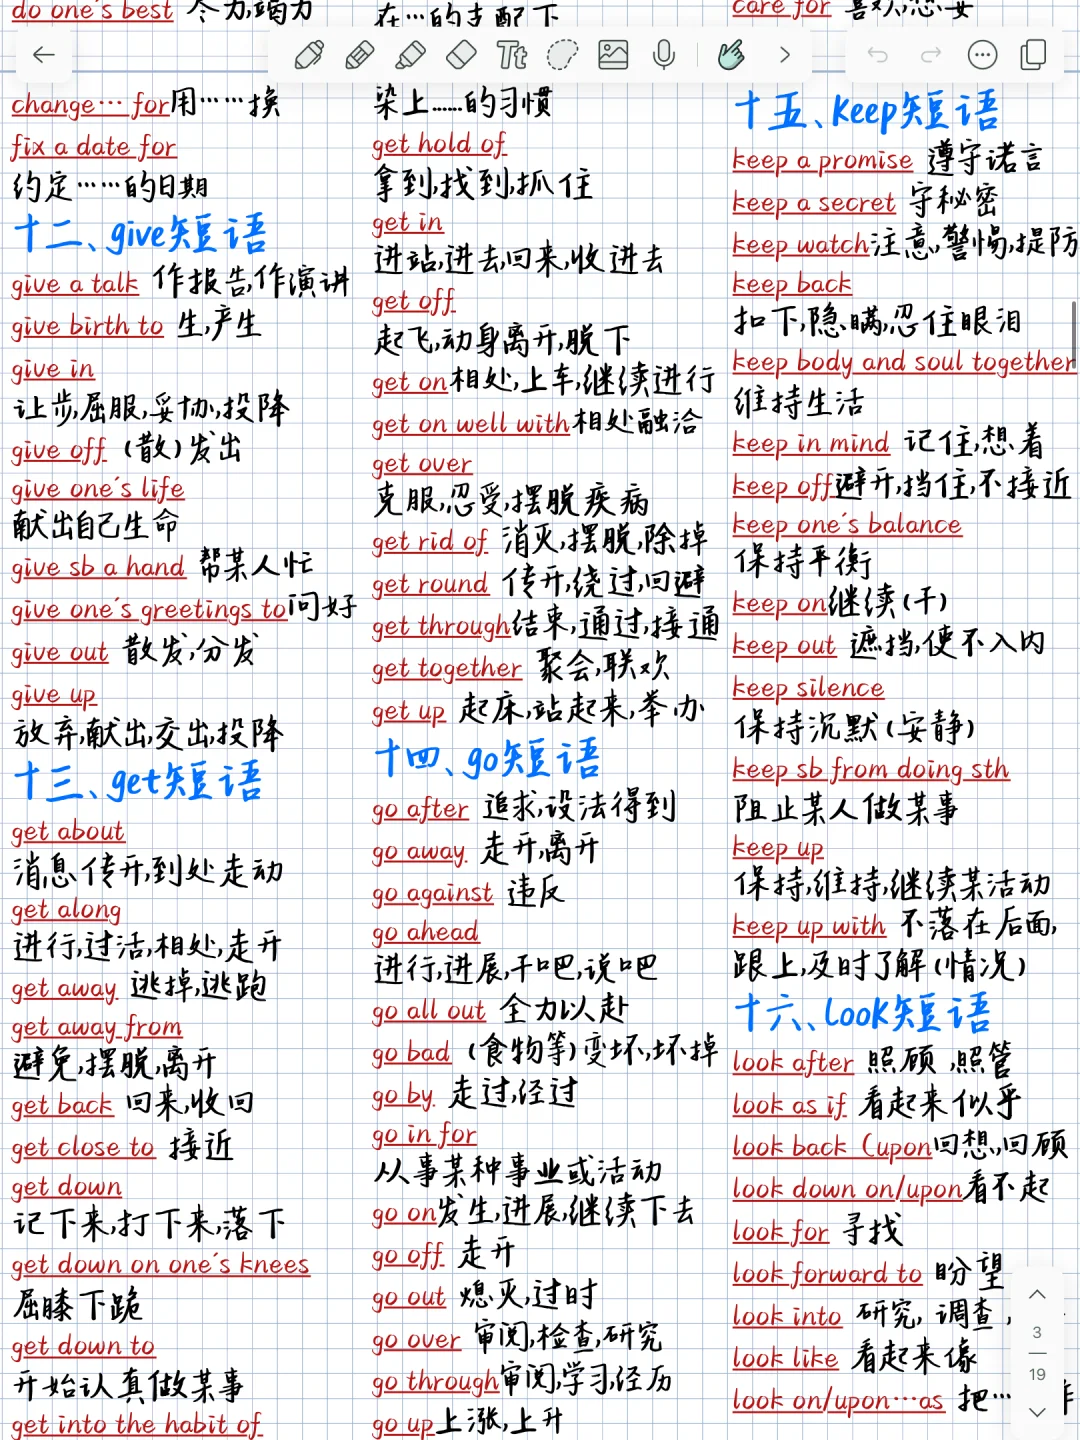 do one's best 尽力,竭力
change… for用……换
fix a date for
约定……的日期
十二、give短语
give a talk 作报告,作演讲
give birth to 生,产生
give in
让步,屈服,妥协,投降
give off (散)发出
give one's life
献出自己生命
give sb a hand 帮某人忙
give one's greetings to问好
give out 散发,分发
give up
放弃,献出,交出,投降
十三、get短语
get about
消息传开,到处走动
get along
进行,过活,相处,走开
get away 逃掉,逃跑
get away from
避免,摆脱,离开
get back 回来,收回
get close to 接近
get down
记下来,打下来,落下
get down on one's knees
屈膝下跪
get down to
开始认真做某事
get into the habit of
在…的支配下
染上……的习惯
get hold of
拿到,找到,抓住
get in
进站,进去,回来,收进去
get off
起飞,动身离开,脱下
get on相处,上车,继续进行
get on well with相处融洽
get over
克服,忍受,摆脱疾病
get rid of 消灭,摆脱,除掉
get round 传开,绕过,回避
get through结束,通过,接通
get together 聚会,联欢
get up 起床,站起来,举办
十四、go短语
go after 追求,设法得到
go away 走开,离开
go against 违反
go ahead
进行,进展,干吧,说吧
go all out 全力以赴
go bad (食物等)变坏,坏掉
go by 走过,经过
go in for
从事某种事业或活动
go on发生,进展,继续下去
go off 走开
go out 熄灭,过时
go over 审阅,检查,研究
go through审阅,学习,经历
go up上涨,上升
care for 喜欢,想要
十五、keep短语
keep a promise 遵守诺言
keep a secret 守秘密
keep watch注意,警惕,提防
keep back
扣下,隐瞒,忍住眼泪
keep body and soul together
维持生活
keep in mind 记住,想着
keep off避开,挡住,不接近
keep one's balance
保持平衡
keep on继续(干)
keep out 遮挡,使不入内
keep silence
保持沉默(安静)
keep sb from doing sth
阻止某人做某事
keep up
保持,维持,继续某活动
keep up with 不落在后面,
跟上,及时了解(情况)
十六、look短语
look after 照顾,照管
look as if 看起来似乎
look back (upon回想,回顾
look down on/upon看不起
look for 寻找
look forward to 盼望
look into 研究, 调查,
look like 看起来像
look on/upon…as 把…
Tt
3
19